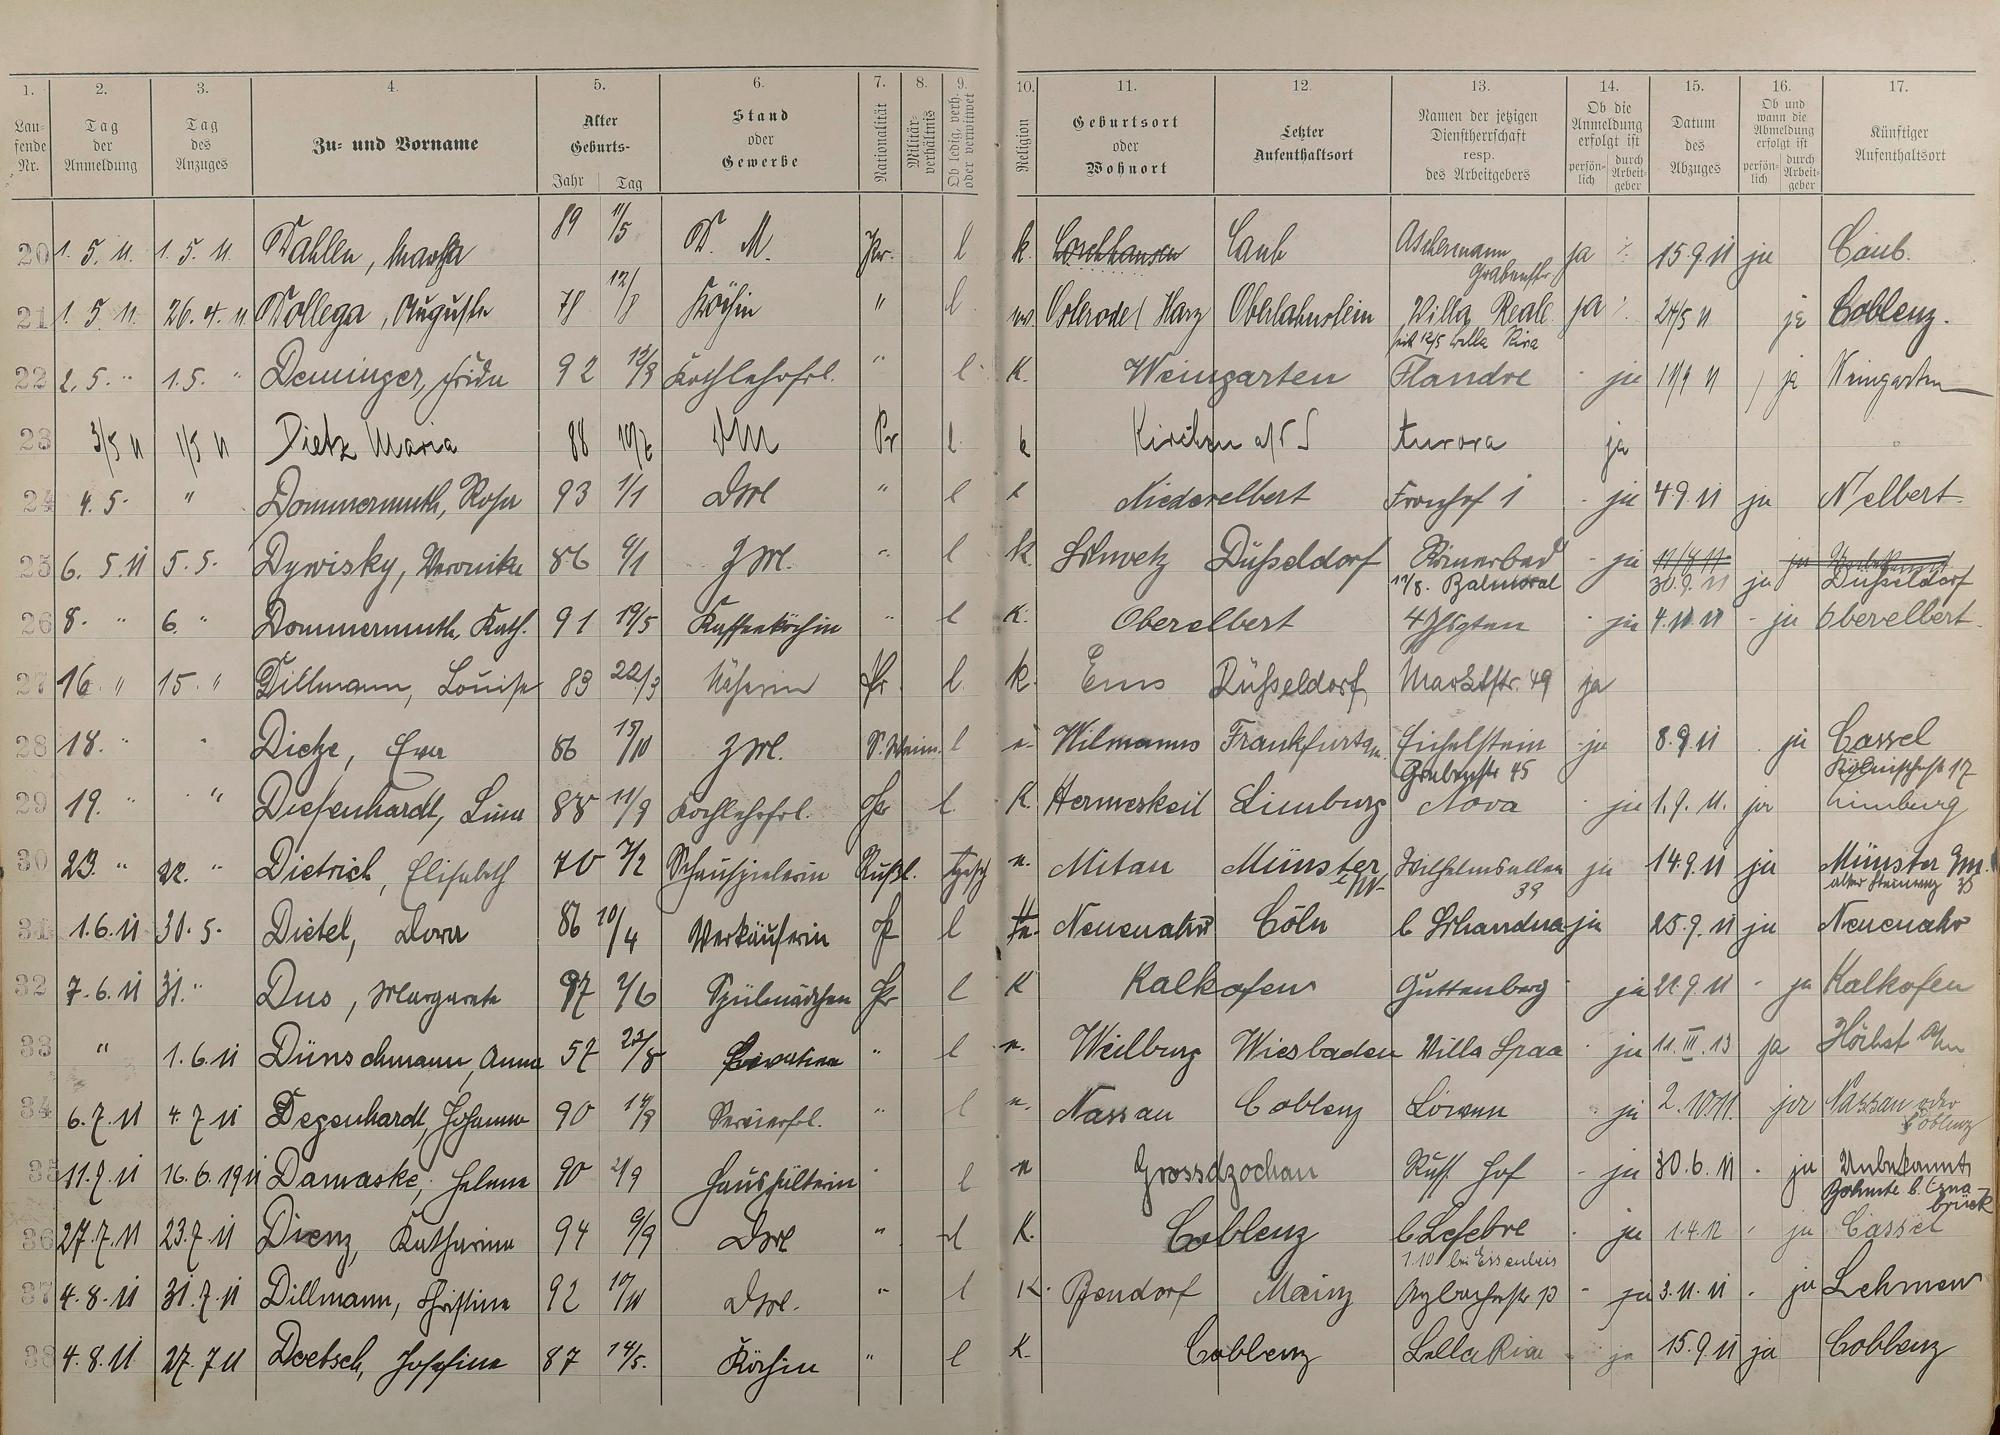 1. 2. 3. 4. 5. 6. 7. 8. 9. 10. 11. 12. 13. 14. 15. 16. 17.
Laufende Nr. Tag der Anmeldung Tag des Anzuges Zu- und Vorname Alter Geburts- Jahr Tag Stand oder Gewerbe Nationalität Militärverhältnis Ob ledig, verh. oder verwitwet Religion Geburtsort oder Wohnort Letzter Aufenthaltsort Namen der jetzigen Dienstherrschaft resp. des Arbeitgebers Ob die Anmeldung erfolgt ist persönlich durch Arbeitgeber Datum des Abzuges Ob und wann die Abmeldung erfolgt ist persönlich durch Arbeitgeber Künftiger Aufenthaltsort
20 1. 5. 11. 1. 5. 11. 89 11/5 D. M. Pr. l k. Caub Aschermann Grabenstr. ja 15.9.11 ja Caub.
21 1. 5. 11. 26. 4. 11. Dollega, Auguste 78 12/8 Köchin " l Osterode/Harz Oberlahnstein Villa Reale ja 24/5 11 ja Coblenz.
22 2. 5. " 1. 5. " Deminger, Frida 92 Kochlehrfrl. " l K. Weingarten Flandre ja ja Weingarten
23 3/5 11 1/5 11 Dietz Maria 88 DM Pr l k Kirchen a/S Aurora ja
24 4. 5. " Dommermuth, Rosa 93 1/1 " l Niederelbert Fronhof 1 - ja 4.9.11 ja N/elbert
25 6. 5. 11 5. 5. Dywisky, Veronika 86 6/1 " l k. Schwetz Düsseldorf Römerbad - ja
12/8. Balmoral 30.9.11 ja Düsseldorf
26 8. " 6. " Dommermuth, Kath. 91 19/5 Kaffeeköchin " l K. Oberelbert - ja 4.10.11 - ja Oberelbert
27 16. " 15. " Dillmann, Louise 83 22/3 Näherin Pr l. k. Ems Düsseldorf Marktstr. 49 ja
28 18. " " Dietze, Ewa 86 15/10 l Wilmanns Frankfurt a/m. Eichelstein Grabenstr 45 - ja 8.9.11 ja Cassel Kölnischestr 17
29 19. " " Diefenhardt, Lina 88 11/9 Kochlehrfrl. Pr l. K. Hermeskeil Limburg Nova - ja 1.9.11. ja Limburg
30 23. " 22. " Dietrich, Elisabeth 70 7/2 Schauspielerin Rußl. Mitau Münster i/W Wilhelmsallee 39 ja 14.9.11 ja Münster
alter Steinweg 35
31 1.6.11 30. 5. Dietel, Dora 86 10/4 Verkäuferin Pr l Neuenahr Cöln ja 25.9.11 ja Neuenahr
32 7.6.11 31. " Dus, Margarete 97 2/6 Spülmädchen Pr l K Kalkofen Guttenberg - ja 21.9.11 - ja Kalkofen
33 " 1.6.11 Dünschmann, Anna 57 22/8 " l Weilburg Wiesbaden Villa Spaa - ja 11. III. 13 ja Höchst a/m
34 6.7.11 4.7.11 Degenhardt, Johanna 90 Servierfrl. " l Nassau Coblenz Löwen - ja 2. 10 11. ja Nassau oder Coblenz
35 11.7.11 16.6.1911 Damaske, Helene 90 2/9 Haushälterin l Russ. Hof - ja 30.6.11 - ja Unbekannt
Bohmte b. Osnabrück
36 27.7.11 23.7.11 Dienz, Katharina 94 9/9 " l K. Coblenz b Lefebre - ja 1.4.12 ja Cassel
1.10 bei Eisenbeis
37 4.8.11 31.7.11 Dillmann, Christina 92 l K. Bendorf Mainz - ja 3.11.11 - ja Lehmen
38 4.8.11 27.7 11 Doetsch, Josefine 87 14/5. Köchin " l K. Coblenz Bella Riva - ja 15.9 11 ja Coblenz